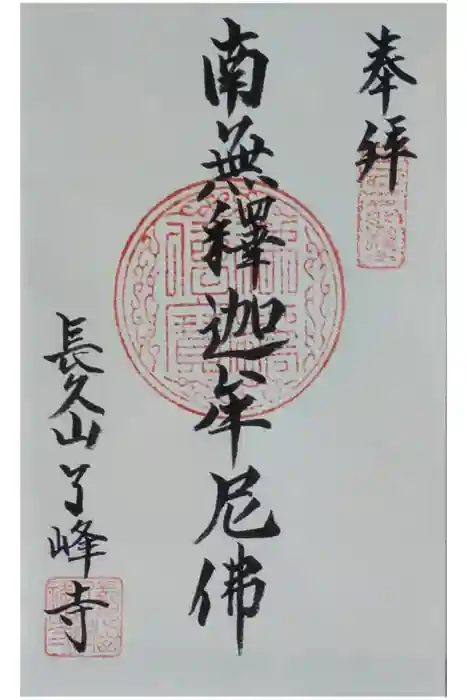 奉拝
南無釋迦牟尼佛
長久山了峰寺